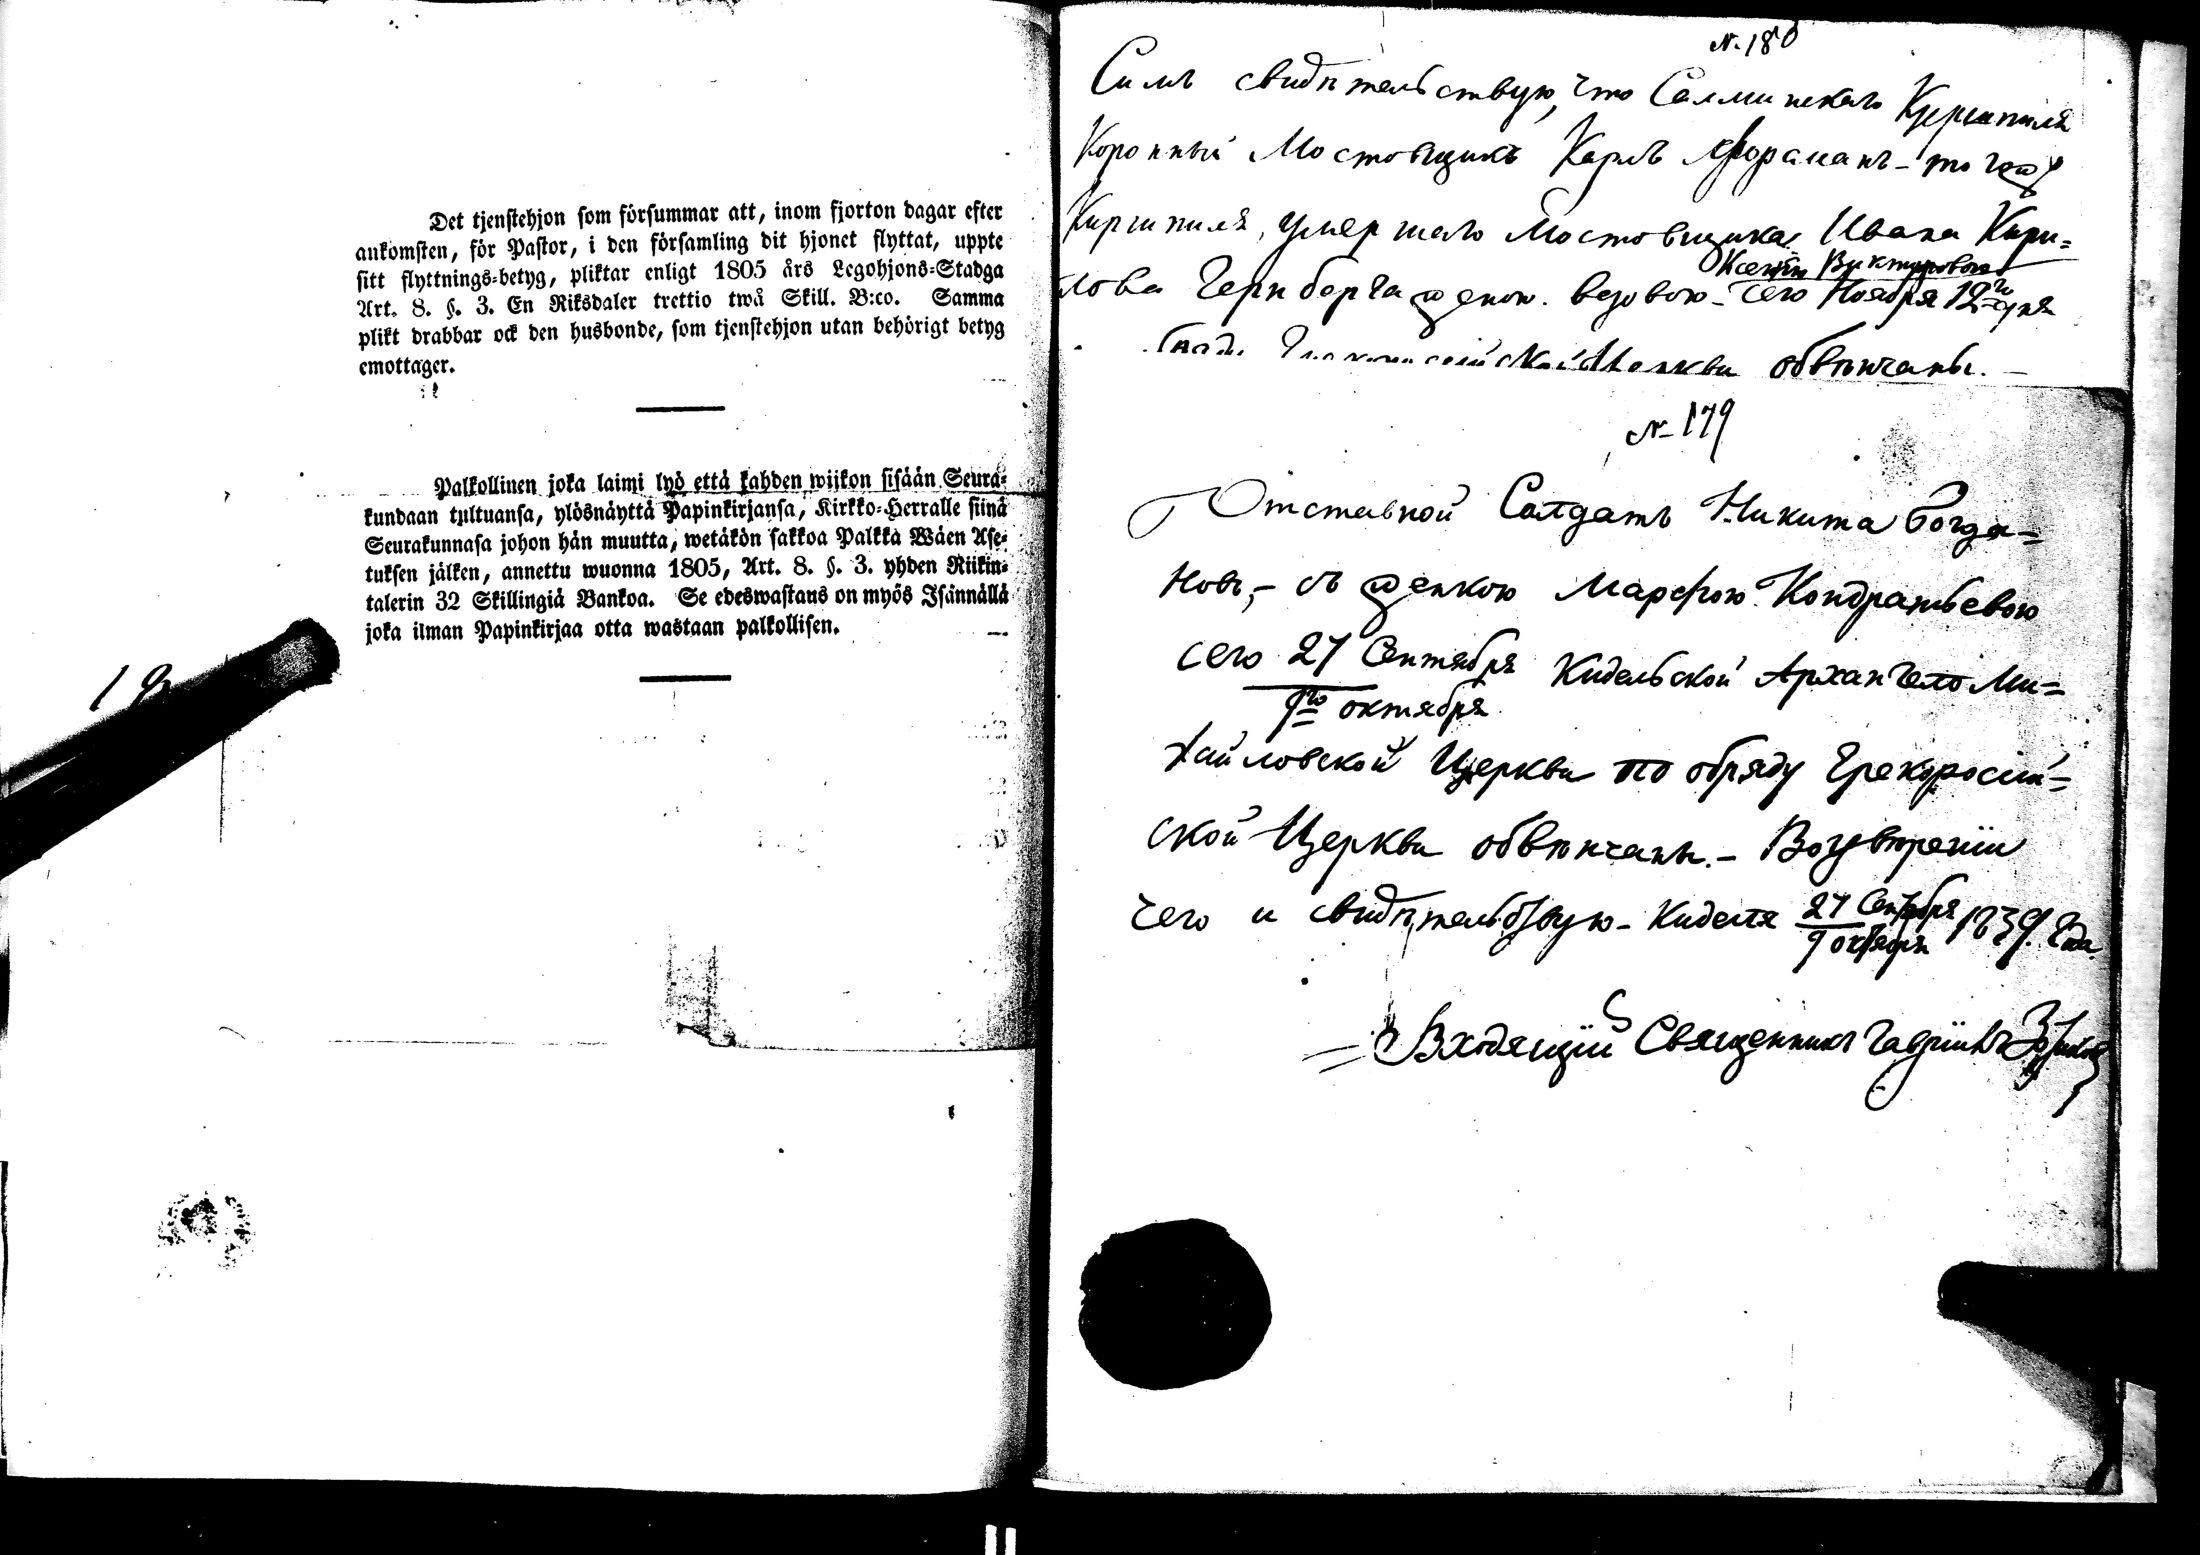 Det tjenstehjon som försummar att, inom fjorton dagar efter
ankomsten, för Pastor, i den församling dit hjonet flyttat, uppte
sitt flyttnings-betyg, pliktar enligt 1805 års Legohjons-Stadga
Art. 8. §. 3. En Riksdaler trettio twå Skill. B:co. Samma
plikt drabbar ock den husbonde, som tjenstehjon utan behörigt betyg
emottager.
Palkollinen joka laimi lyö että kahden wiikon sisään Seura-
kundaan tultuansa, ylösnäyttä Papinkirjansa, Kirkko-Herralle siinä
Seurakunnasa johon hän muutta, wetäkön sakkoa Palkka Wäen Ase-
tuksen jälken, annettu wuonna 1805, Art. 8. §. 3. yhden Riikin-
talerin 32 Skillingiä Bankoa. Se edeswastaus on myös Isännällä
joka ilman Papinkirjaa otta wastaan palkollisen.
N. 180
Симъ свидѣтельствую, что Салминскаго Кершпиля
Коронный Мостовщикъ Карлъ
Киршпиля, умершаго Мостовщика Ивана Кири=
Ксенiя Викторовою
лова Гернберга женою вдовою - сего Ноября 12го дня
Церкви обвѣнчаны. -
N- 179
Отставной Салдатъ Никита Богда=
новъ, - съ женкою Марфою Кондратьевою
сего 27 Сентября Кидельской Архангело Ми=
9го октября
хайловской Церкви по обряду Грекоросiй=
ской Церкви обвѣнчаны. -
чего и свидѣтельствую - Киделя 27 Сентября 1839. Года
9 октября
Священникъ Гаврiилъ